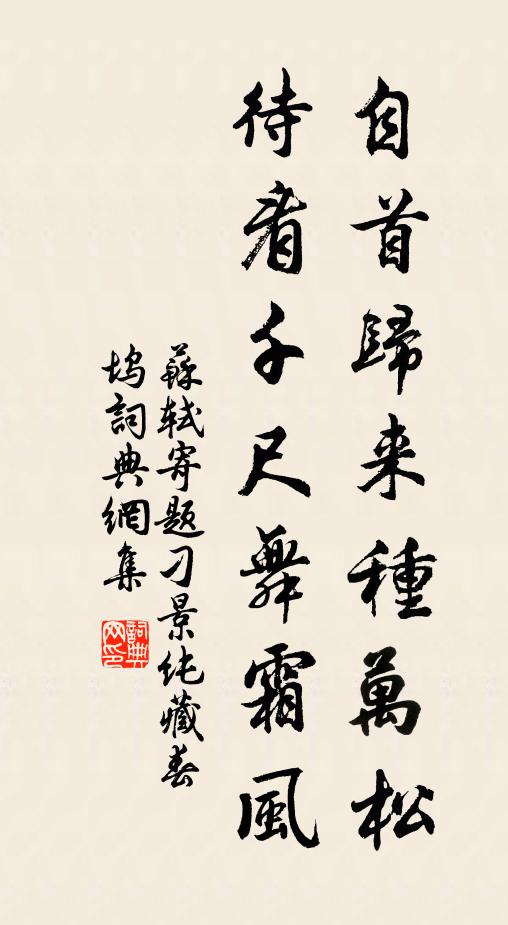 白首歸来種萬松
待看千尺舞霜風
蘇軾寄題刁景纯藏春
坞詞典網集
詞典
网印